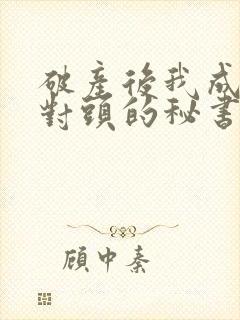 破產後我成
對頭的秘書
顧中秦